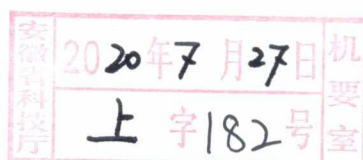 安徽省科技厅
2020年7月27日
上字182号
机要室